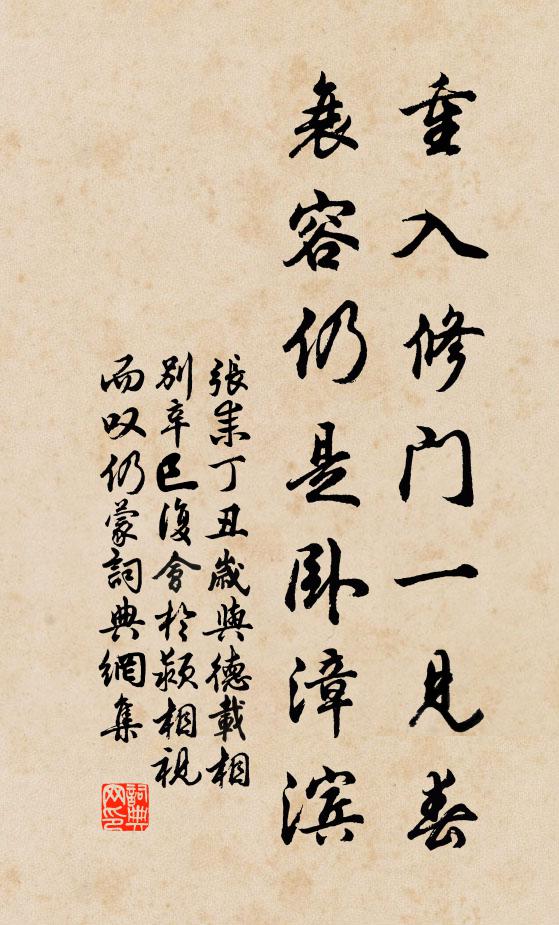 重入修门一見春
衰容仍是卧漳滨
張耒丁丑歲與德載相
別辛巳復會於潁相視
而叹仍蒙詞典網集
詞典网印